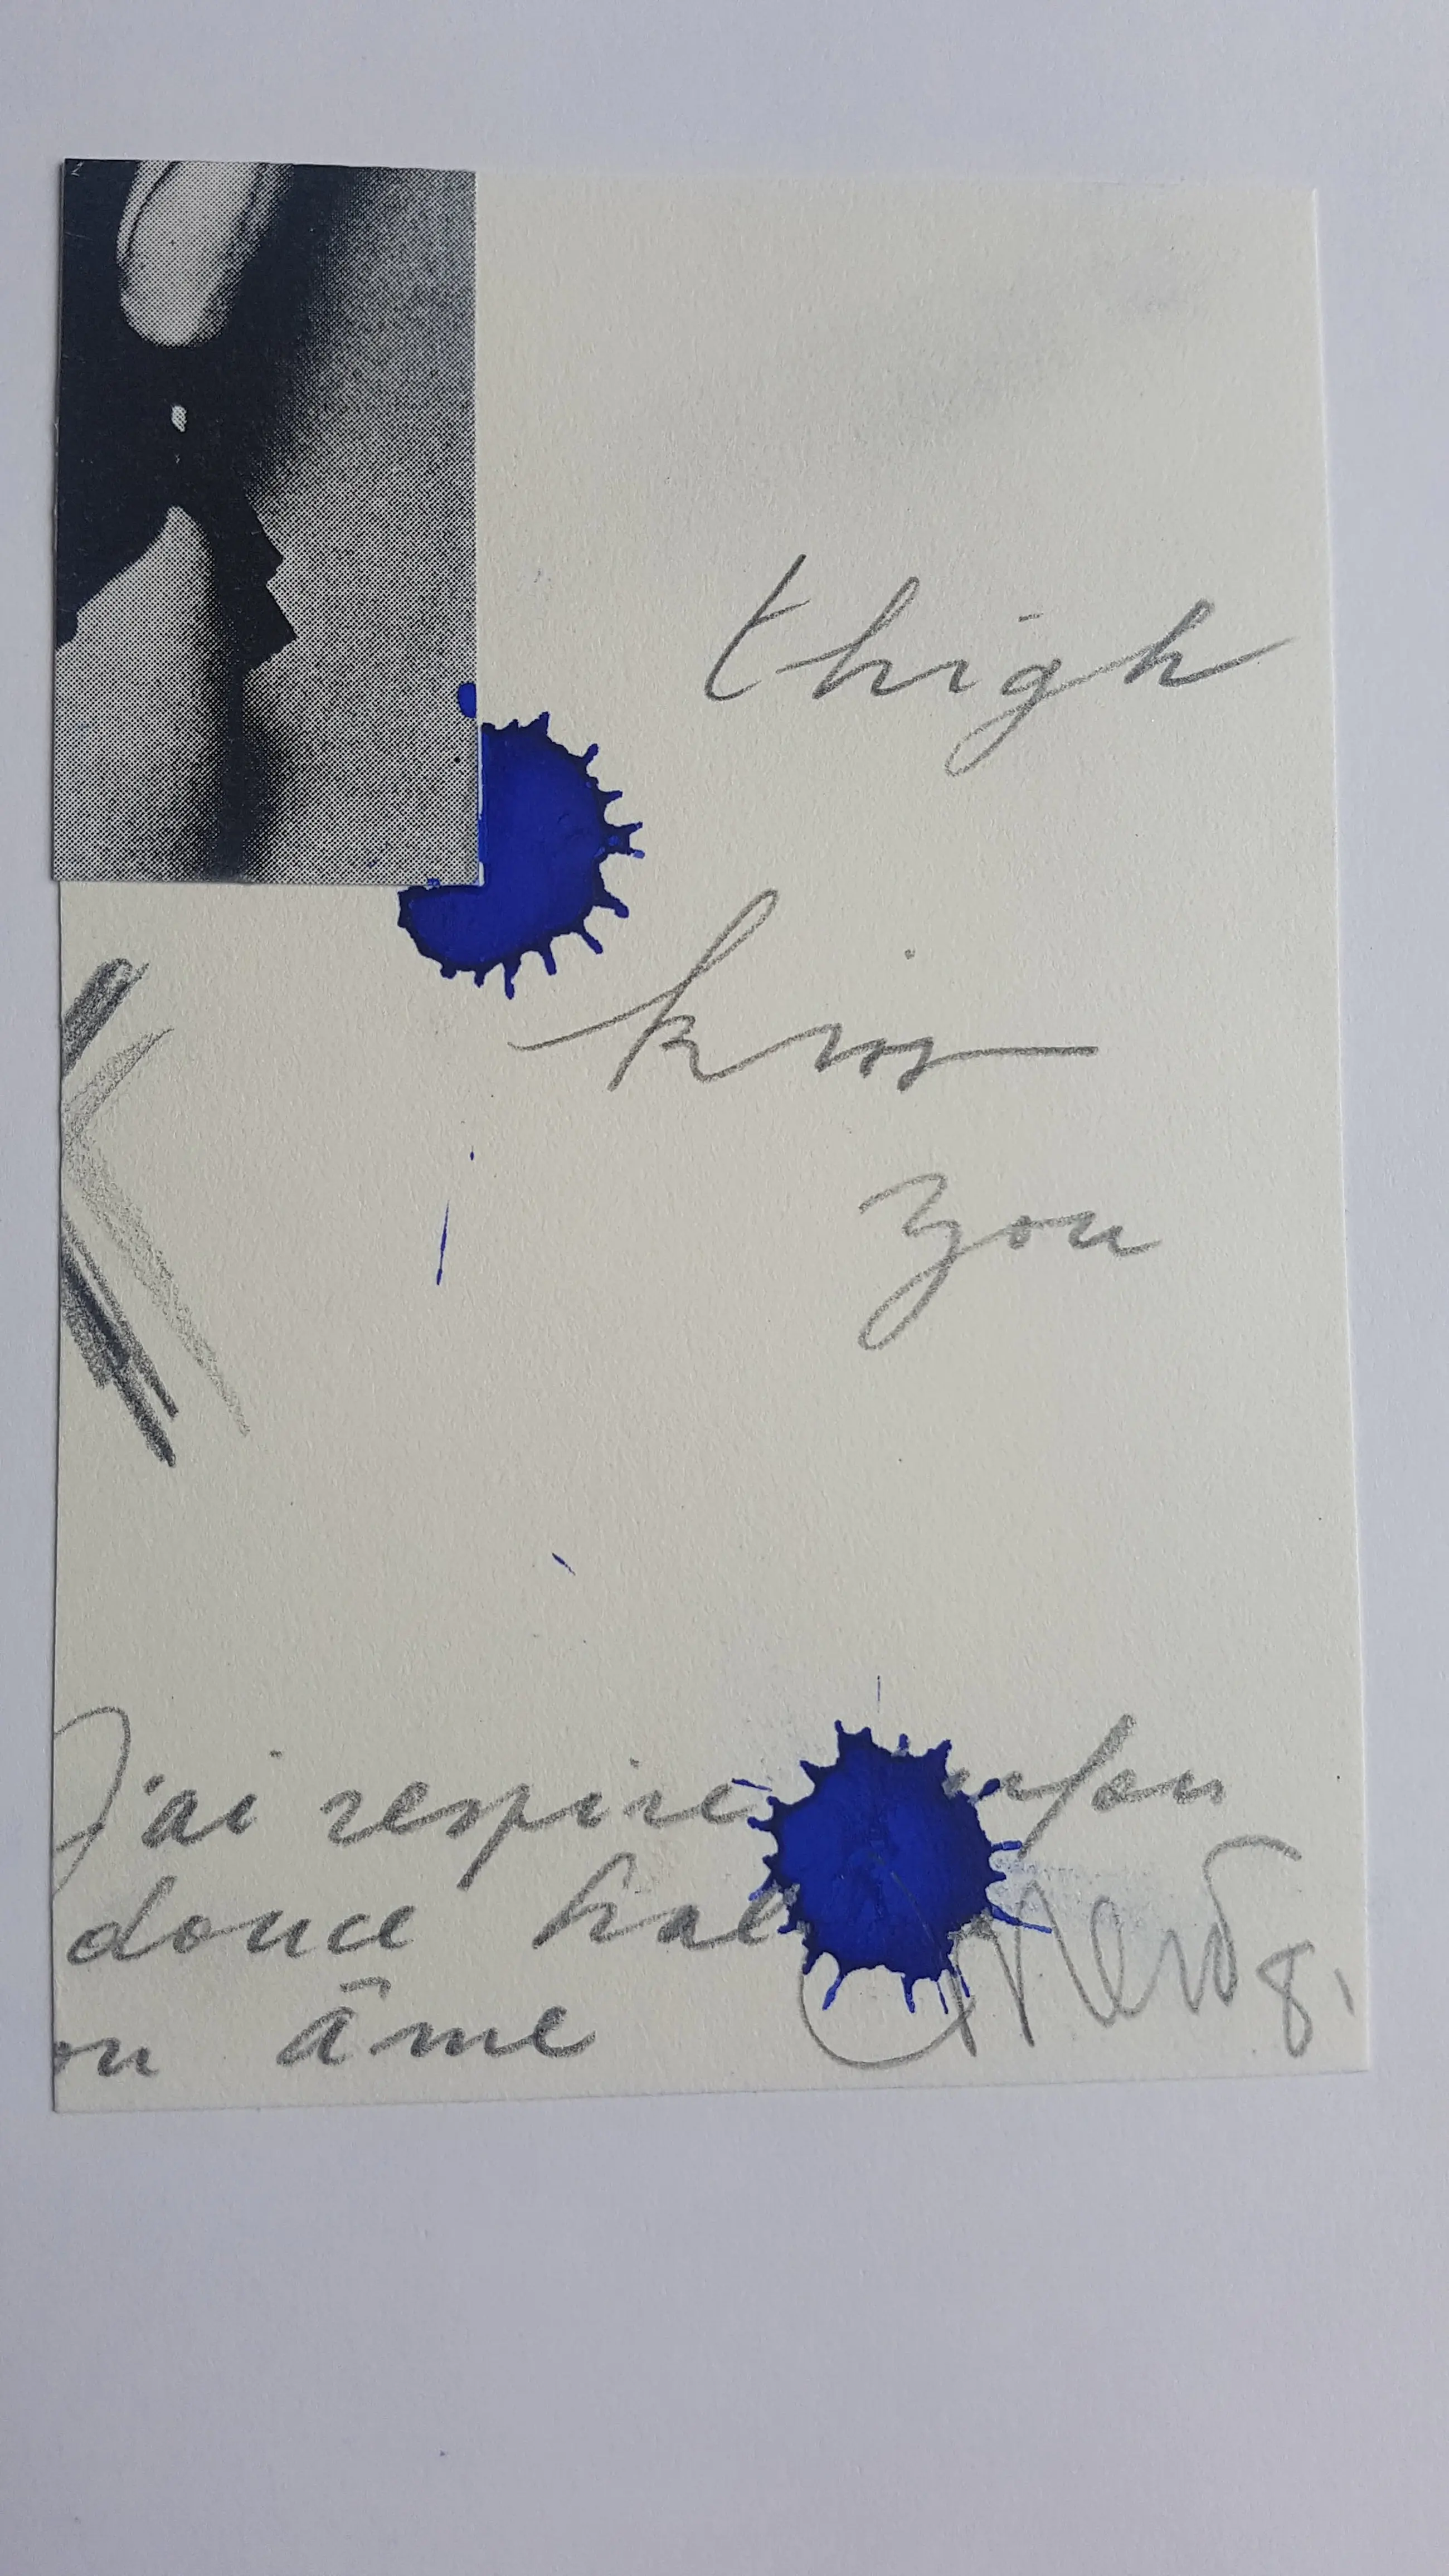 thigh
kiss
you
J'ai respire
douce hal
on âme